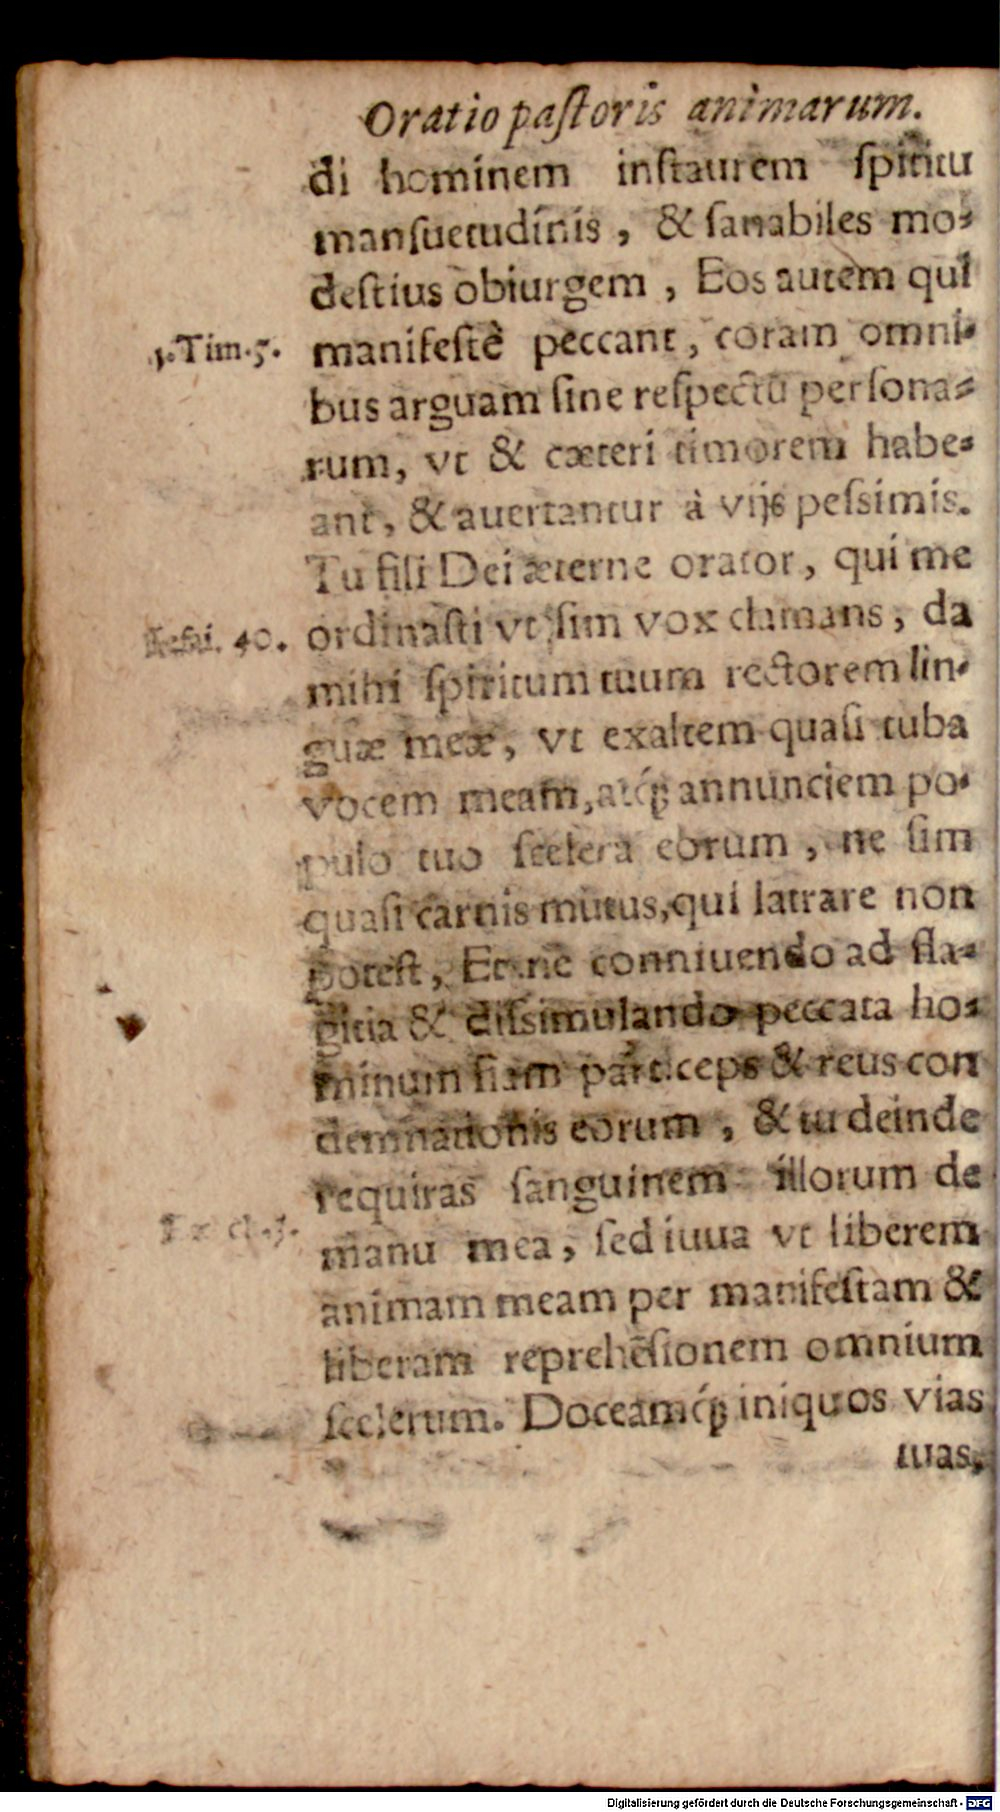 Oratio paſtoris animarum.
di hominem inſtaurem ſpiritu
manſuetudinis, & ſanabiles mo-
deſtius obiurgem, Eos autem qui
1. Tim. 5.
manifeſtè peccant, coram omni-
bus arguam ſine reſpectu perſona-
rum, vt & cæteri timorem habe-
ant, & auertantur à vijs peſsimis.
Tu fili Dei æterne orator, qui me
Iesai. 40.
ordinaſti vt ſim vox clamans, da
mihi ſpiritum tuum rectorem lin-
guæ meæ, vt exaltem quaſi tuba
vocem meam, atq́ꝫ annunciem po-
pulo tuo ſcelera eorum, ne ſim
quaſi carnis mutus, qui latrare non
poteſt, Et ne conniuendo ad fla-
gitia & diſsimulando peccata ho-
minum fiam particeps & reus con
demnationis eorum, & tu deinde
requiras ſanguinem illorum de
manu mea, ſed iuua vt liberem
animam meam per manifeſtam &
liberam reprehēſionem omnium
ſcelerum. Doceamq́ꝫ iniquos vias
tuas,
Digitalisierung gefördert durch die Deutsche Forschungsgemeinschaft - DFG